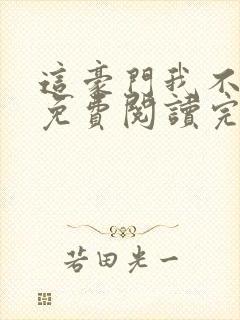 這豪門我不
免費閱讀完
若田光一